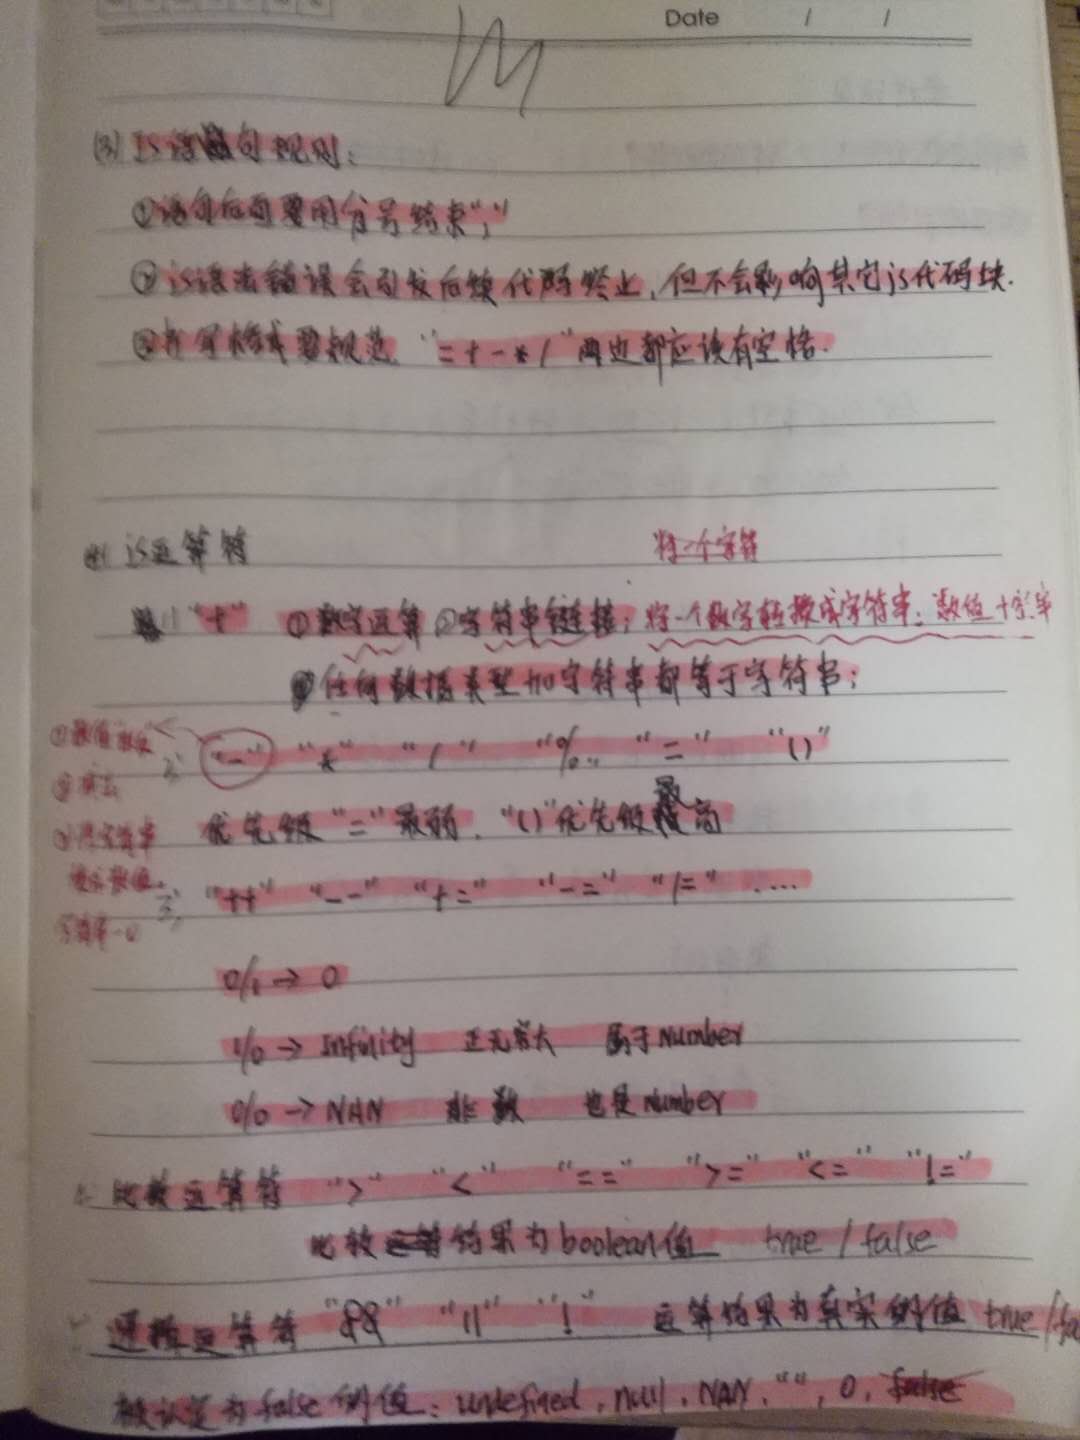 Date / /
(3) JS语句规则:
①语句后面要用分号结束";"
②js语法错误会引发后续代码终止,但不会影响其它js代码块.
③书写格式要规范 "= + - * /"两边都应该有空格.
(4) js运算符
将一个字符
1. "+" ①数字运算 ②字符串链接; 将一个数字转换成字符串: 数值+字串
任何数据类型加字符串都等于字符串;
2. "-" "*" "/" "%" "=" "()"
优先级 "="最弱. "()"优先级最高
3. "++" "--" "+=" "-=" "/=" ....
0/1 → 0
1/0 → Infinity 正无穷大 属于Number
0/0 → NAN 非数 也是number
比较运算符 ">" "<" "==" ">=" "<=" "!="
比较结果为boolean值 true / false
逻辑运算符 "&&" "||" "!" 运算结果为真实的值 true/fa
被认定为false的值: undefined, null, NAN, "", 0, false